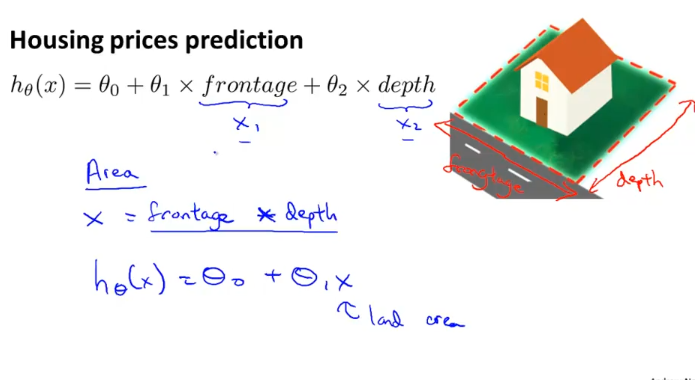 Housing prices prediction
hθ(x) = θ0 + θ1 × frontage + θ2 × depth
x1 x2
Area
x = frontage * depth
hθ(x) = θ0 + θ1 x
land area
depth